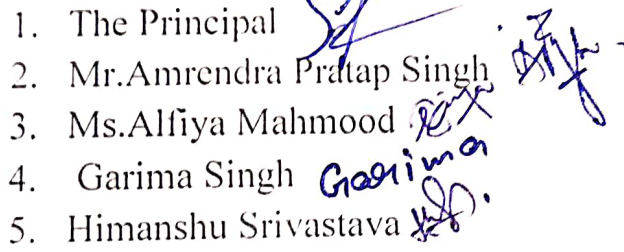 1. The Principal
2. Mr.Amrendra Pratap Singh
3. Ms.Alfiya Mahmood
4. Garima Singh Garima
5. Himanshu Srivastava